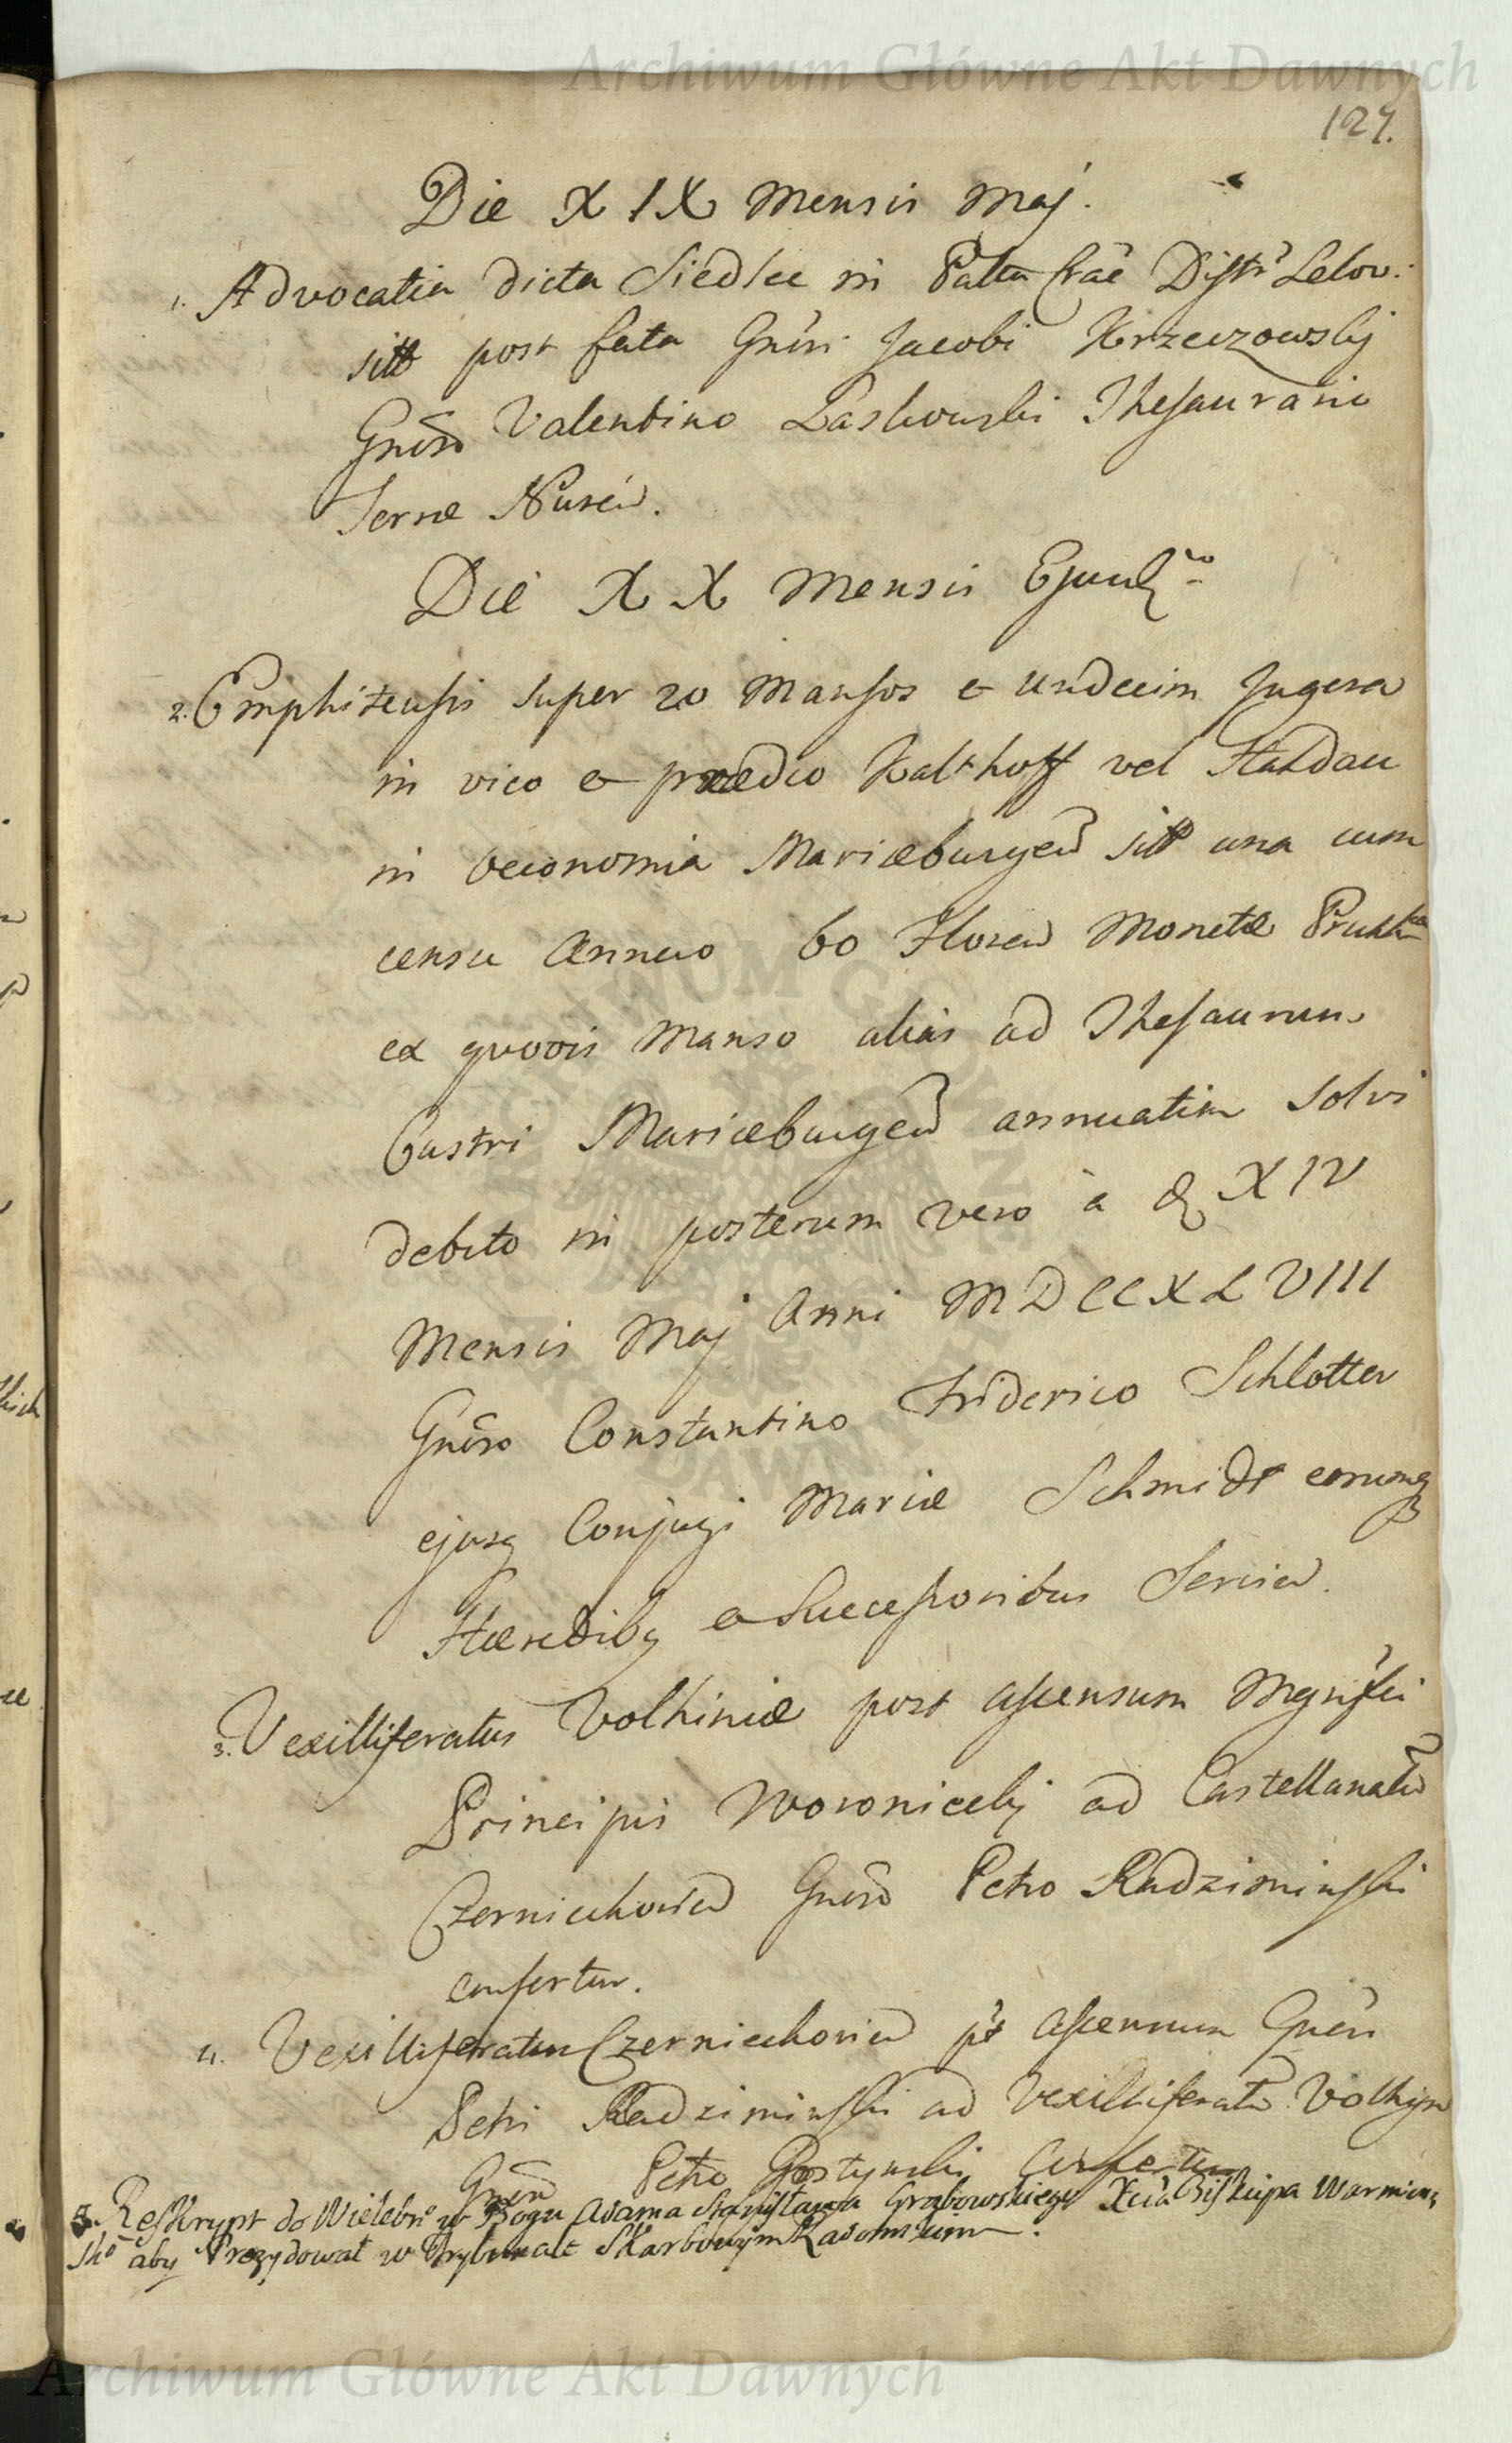 Archiwum Główne Akt Dawnych
127.
Die XIX Mensis Maj.
1. Advocatia dicta Siedlce in Pattu Crac Distr Lelov:
sitt post fata Gnĕri Jacobi Krzeczowskj
Gnŏso Valentino Laskowski Thesaurario
Terræ Nurĕn.
Die XX Mensis Ejusdem
2. Emphiteusis super 20 Mansos et undecim Jugera
in vico et prædio Kalthoff vel Haldau
in Oeconomia Mariæburgen sitt una cum
censu Annuo 60 Floren Monetæ Prussicæ
ex quovis Manso alias ad Thesaurum
Castri Mariæburgen annuatim solvi
debito in posterum vero à d. XIV
Mensis Maj Anni MDCCXLVIII
Gnŏso Constantino Friderico Schlotter
ejusq Conjugi Mariæ Schmidt eorumq
Hæredibq et Successoribus Servien.
3. Vexilliferatus Volhiniæ post ascensum Mgnifici
Principis Woronieckj ad Castellanatu
Czerniechovien Gnŏso Petro Radziminski
confertur.
4. Vexilliferatus Czerniechovien pt ascensum Gnĕri
Petri Radziminski ad Vexilliferatu Volhyn
Gnŏso Petro Gostynski Confertur
5. Reskrypt do Wielebn° w Bogu Adama Stanisława Grabowskiego Xcia Biskupa Warmin,
sk° aby Prezydował w Trybunale Skarbowym Radomskim.
Archiwum Główne Akt Dawnych